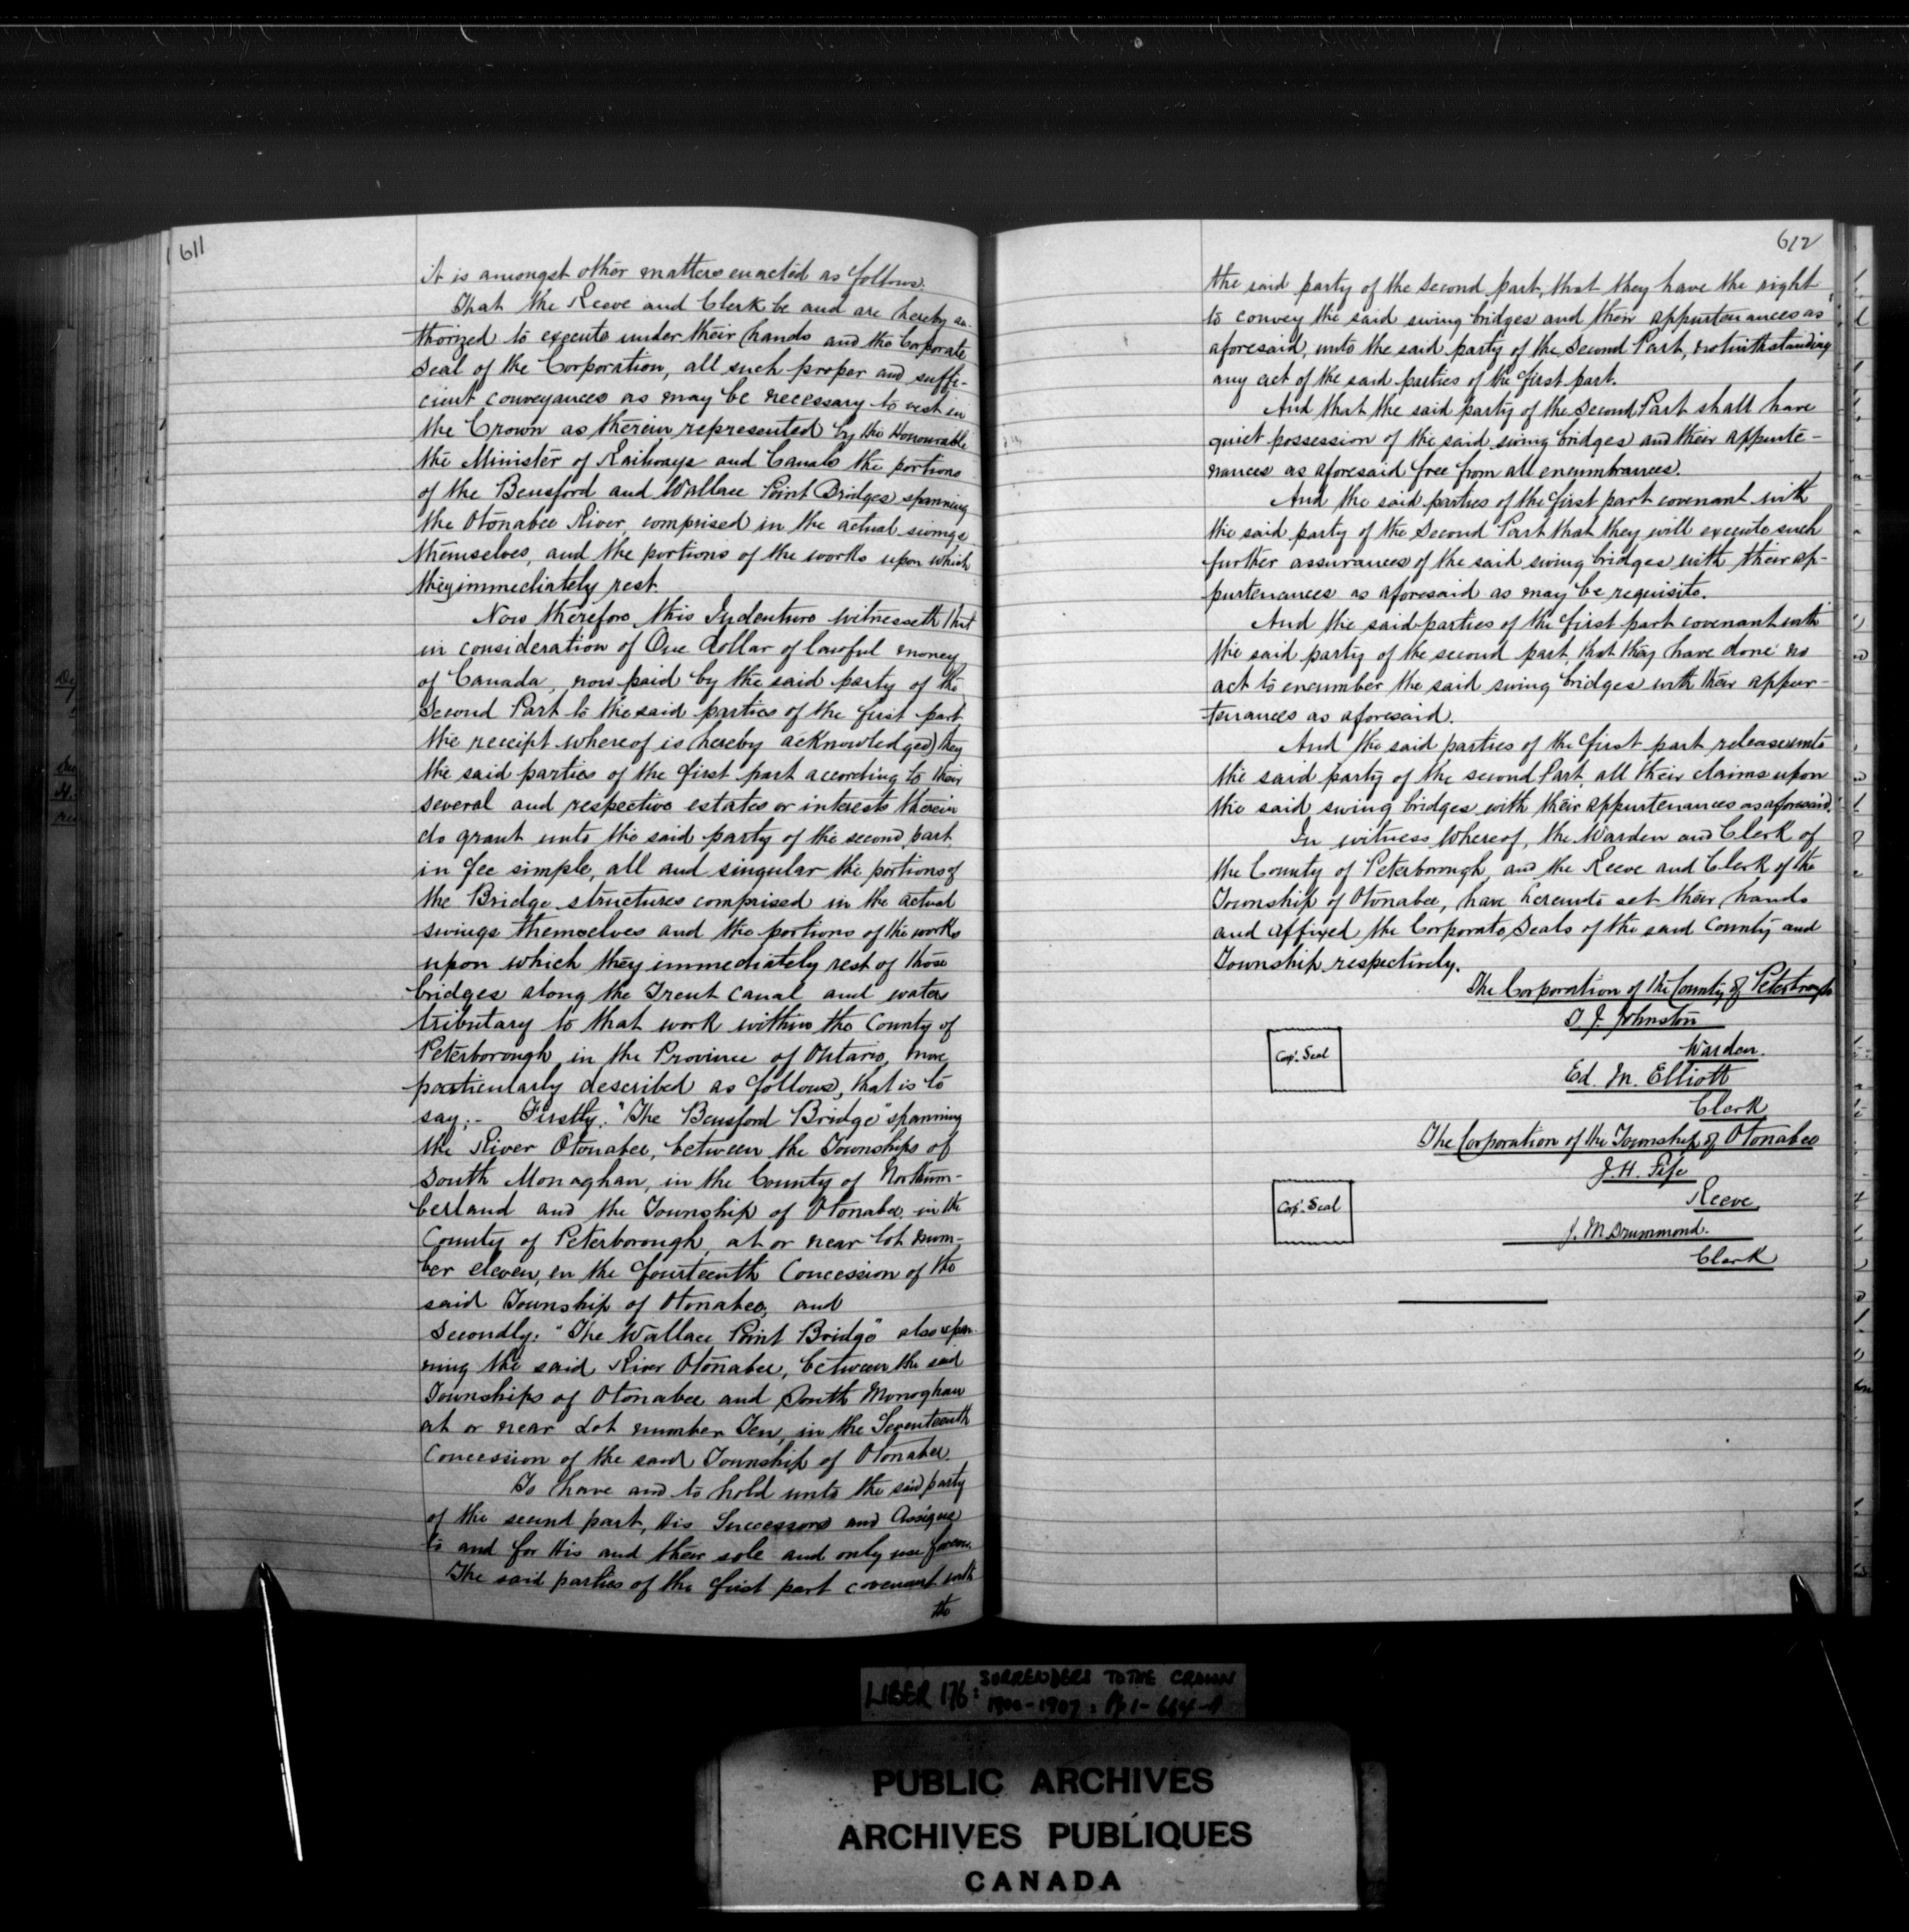 611
it is amongst other matters enacted as follows.
That the Reeve and Clerk be and are hereby au-
thorized to execute under their hands and the Corporate
Seal of the Corporation, all such proper and suffi-
cient conveyances as may be necessary to vest in
the Crown as therein represented by the Honourable
the Minister of Railways and Canals the portions
of the Bensford and Wallace Point Bridges spanning
the Otonabee River, comprised in the actual swings
themselves, and the portions of the works upon which
they immediately rest.
Now therefore this Indenture witnesseth that
in consideration of One dollar of lawful money
of Canada, now paid by the said party of the
Second Part to the said parties of the first part
the receipt whereof is hereby acknowledged) they
the said parties of the first part according to their
several and respective estates or interests therein
do grant unto the said party of the second part
in fee simple, all and singular the portions of
the Bridge structures comprised in the actual
swings themselves and the portions of the works
upon which they immediately rest of those
bridges along the Trent Canal and waters
tributary to that work within the County of
Peterborough in the Province of Ontario, more
particularly described as follows, that is to
say:- Firstly: "The Bensford Bridge" spanning
the River Otonabee, between the Townships of
South Monaghan, in the County of Northum-
berland and the Township of Otonabee in the
County of Peterborough, at or near lot num-
ber eleven, in the fourteenth Concession of the
said Township of Otonabee, and
Secondly: "The Wallace Point Bridge" also span-
ning the said River Otonabee, between the said
Townships of Otonabee and South Monoghan
at or near Lot number Ten, in the Seventeenth
Concession of the said Township of Otonabee.
To have and to hold unto the said party
of the second part, His Successors and Assigns
to and for His and their sole and only use forever.
The said parties of the first part covenant with
the
612
the said party of the second part, that they have the right
to convey the said swing bridges and their appurtenances as
aforesaid, unto the said party of the Second Part, notwithstanding
any act of the said parties of the first part.
And that the said party of the Second Part shall have
quiet possession of the said swing bridges and their appurte-
nances as aforesaid free from all encumbrances.
And the said parties of the first part covenant with
the said party of the Second Part that they will execute such
further assurances of the said swing bridges with their ap-
purtenances as aforesaid as may be requisite.
And the said parties of the first part covenant with
the said party of the second part, that they have done no
act to encumber the said swing bridges with their appur-
tenances as aforesaid.
And the said parties of the first part release unto
the said party of the second Part all their claims upon
the said swing bridges with their appurtenances as aforesaid.
In witness Whereof, the Warden and Clerk of
the County of Peterborough, and the Reeve and Clerk of the
Township of Otonabee, have hereunto set their hands
and affixed the Corporate Seals of the said County and
Township respectively.
The Corporation of the County of Peterborough
T. J. Johnston
Warden.
Corp. Seal
Ed. M. Elliott
Clerk
The Corporation of the Township of Otonabee
J. H. Fife
Reeve.
Corp. Seal
J. M. Drummond.
Clerk
LIBER 176: SURRENDERS TO THE CROWN
1900-1907: Pp 1-664-A
PUBLIC ARCHIVES
ARCHIVES PUBLIQUES
CANADA